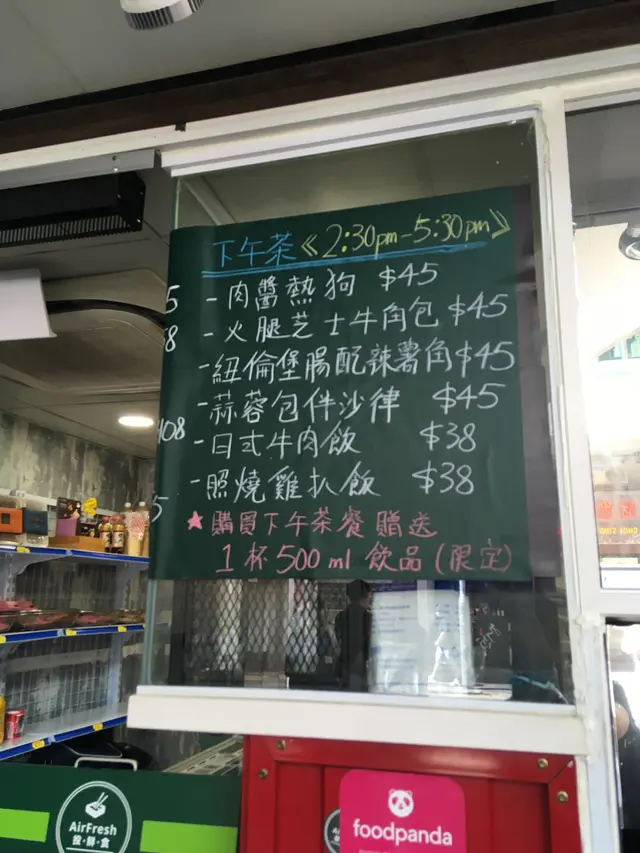 下午茶《2:30pm-5:30pm》
-肉醬熱狗 $45
-火腿芝士牛角包 $45
-紐倫堡腸配辣薯角 $45
-蒜蓉包伴沙律 $45
-日式牛肉飯 $38
-照燒雞扒飯 $38
★購買下午茶餐贈送
1杯500ml飲品(限定)
5
8
108
5
AirFresh
foodpanda